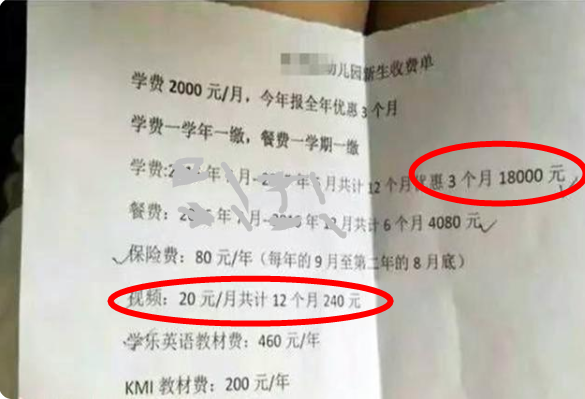 幼儿园新生收费单
学费 2000 元/月，今年报全年优惠 3 个月
学费一学年一缴，餐费一学期一缴
学费: 月共计 12 个月优惠 3 个月 18000 元
餐费： 月共计 6 个月 4080 元
保险费：80 元/年（每年的 9 月至第二年的 8 月底）
视频：20 元/月共计 12 个月 240 元
学乐英语教材费：460 元/年
KMI 教材费：200 元/年